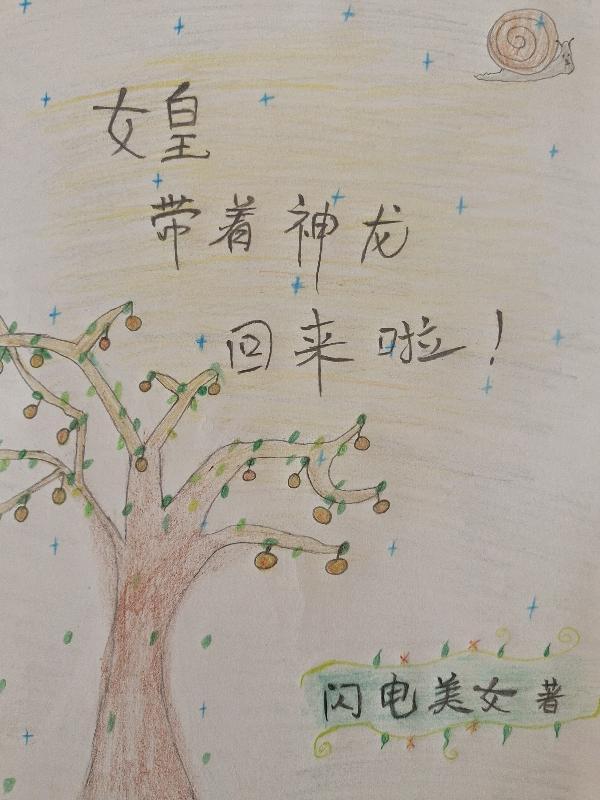 女皇
带着神龙
回来啦！
闪电美女著